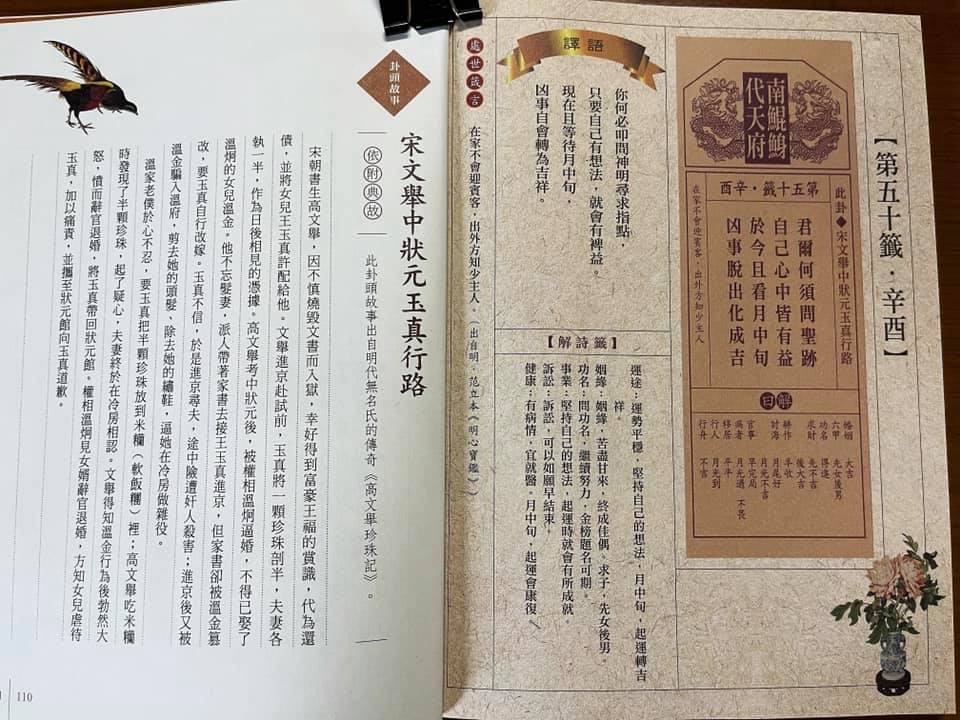 【第五十籤．辛酉】
南鯤鯓
代天府
第五十籤．辛酉
此卦◆宋文舉中狀元玉真行路
君爾何須問聖跡
自己心中皆有益
於今且看月中旬
凶事脫出化成吉
在家不會迎賓客，出外方知少主人
解曰
婚姻 大吉
六甲 先女後男
功名 得進
求財 先不吉後大吉
耕作 半收
討海 月尾好
官事 早完局
病者 月光過 不畏
移居 平平
行人 月光到
行舟 不吉
譯語
你何必叩問神明尋求指點，
只要自己有想法，就會有裨益。
現在且等待月中旬，
凶事自會轉為吉祥。
【解詩籤】
運途：運勢平穩，堅持自己的想法，月中旬，起運轉吉
祥。
姻緣：姻緣，苦盡甘來，終成佳偶。求子，先女後男。
功名：問功名，繼續努力，金榜題名可期。
事業：堅持自己的想法，起運時就會有所成就。
訴訟：訴訟，可以如願早結束。
健康：有病情，宜就醫。月中旬，起運會康復。
處世箴言
在家不會迎賓客，出外方知少主人。（出自明．范立本《明心寶鑑》）
卦頭故事
宋文舉中狀元玉真行路
依附典故
此卦頭故事出自明代無名氏的傳奇《高文舉珍珠記》。
宋朝書生高文舉，因不慎燒毀文書而入獄，幸好得到富豪王福的賞識，代為還
債，並將女兒王玉真許配給他。文舉進京赴試前，玉真將一顆珍珠剖半，夫妻各
執一半，作為日後相見的憑據。高文舉考中狀元後，被權相溫炯逼婚，不得已娶了
溫炯的女兒溫金。他不忘髮妻，派人帶著家書去接王玉真進京，但家書卻被溫金篡
改，要玉真自行改嫁。玉真不信，於是進京尋夫，途中險遭奸人殺害；進京後又被
溫金騙入溫府，剪去她的頭髮、除去她的繡鞋，逼她在冷房做雜役。
溫家老僕於心不忍，要玉真把半顆珍珠放到米糷（軟飯糷）裡；高文舉吃米糷
時發現了半顆珍珠，起了疑心，夫妻終於在冷房相認。文舉得知溫金行為後勃然大
怒，憤而辭官退婚，將玉真帶回狀元館。權相溫炯見女婿辭官退婚，方知女兒虐待
玉真，加以痛責，並攜至狀元館向玉真道歉。
110